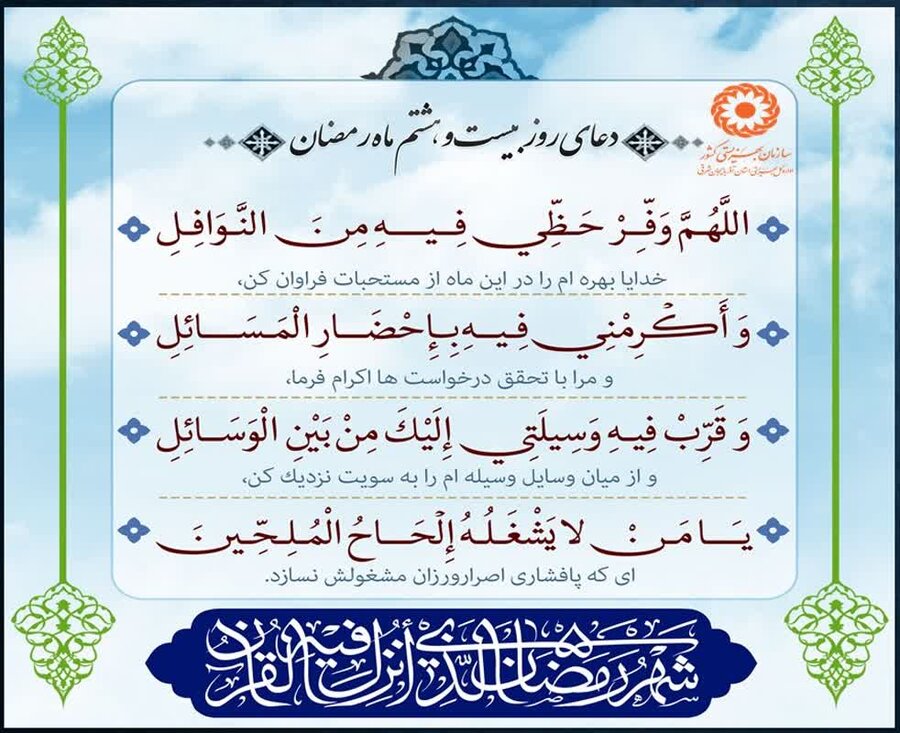 دعای روز بیست و هشتم ماه رمضان
سازمان بهزیستی کشور
اداره کل بهزیستی استان آذربایجان شرقی
اللَّهُمَّ وَفِّرْ حَظِّي فِيهِ مِنَ النَّوَافِلِ
خدایا بهره ام را در این ماه از مستحبات فراوان کن،
وَ أَكْرِمْنِي فِيهِ بِإِحْضَارِ الْمَسَائِلِ
و مرا با تحقق درخواست ها اکرام فرما،
وَ قَرِّبْ فِيهِ وَسِيلَتِي إِلَيْكَ مِنْ بَيْنِ الْوَسَائِلِ
و از میان وسایل وسیله ام را به سویت نزدیك کن،
يَا مَنْ لا يَشْغَلُهُ إِلْحَاحُ الْمُلِحِّينَ
ای که پافشاری اصرارورزان مشغولش نسازد.
شهر رمضان الذي أنزل فيه القرآن